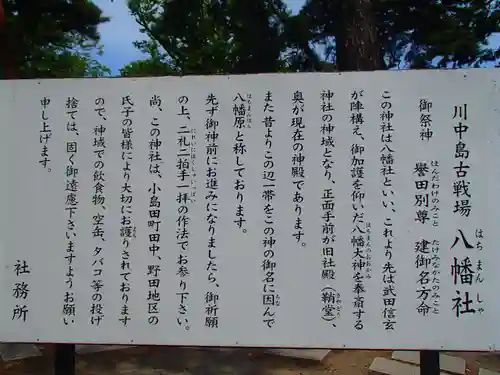 川中島古戦場 八幡社
はちまんしゃ
御祭神 誉田別尊 建御名方命
ほんだわけのみこと たけみなかたのみこと
この神社は八幡社といい、これより先は武田信玄
が陣構え、御加護を仰いだ八幡大神を奉斎する
はちまんのおおかみ
神社の神域となり、正面手前が旧社殿(鞘堂)、
さやどう
奥が現在の神殿であります。
また昔よりこの辺一帯をこの神の御名に因んで
八幡原と称しております。
はちまんばら
先ず御神前にお進みになりましたら、御祈願
の上、二礼二拍手一拝の作法でお参り下さい。
にれいにはくしゅいっぱい
尚、この神社は、小島田町田中、野田地区の
氏子の皆様により大切にお護りされております
まも
ので、神域での飲食物、空缶、タバコ等の投げ
捨ては、固く御遠慮下さいますようお願い
申し上げます。
社務所